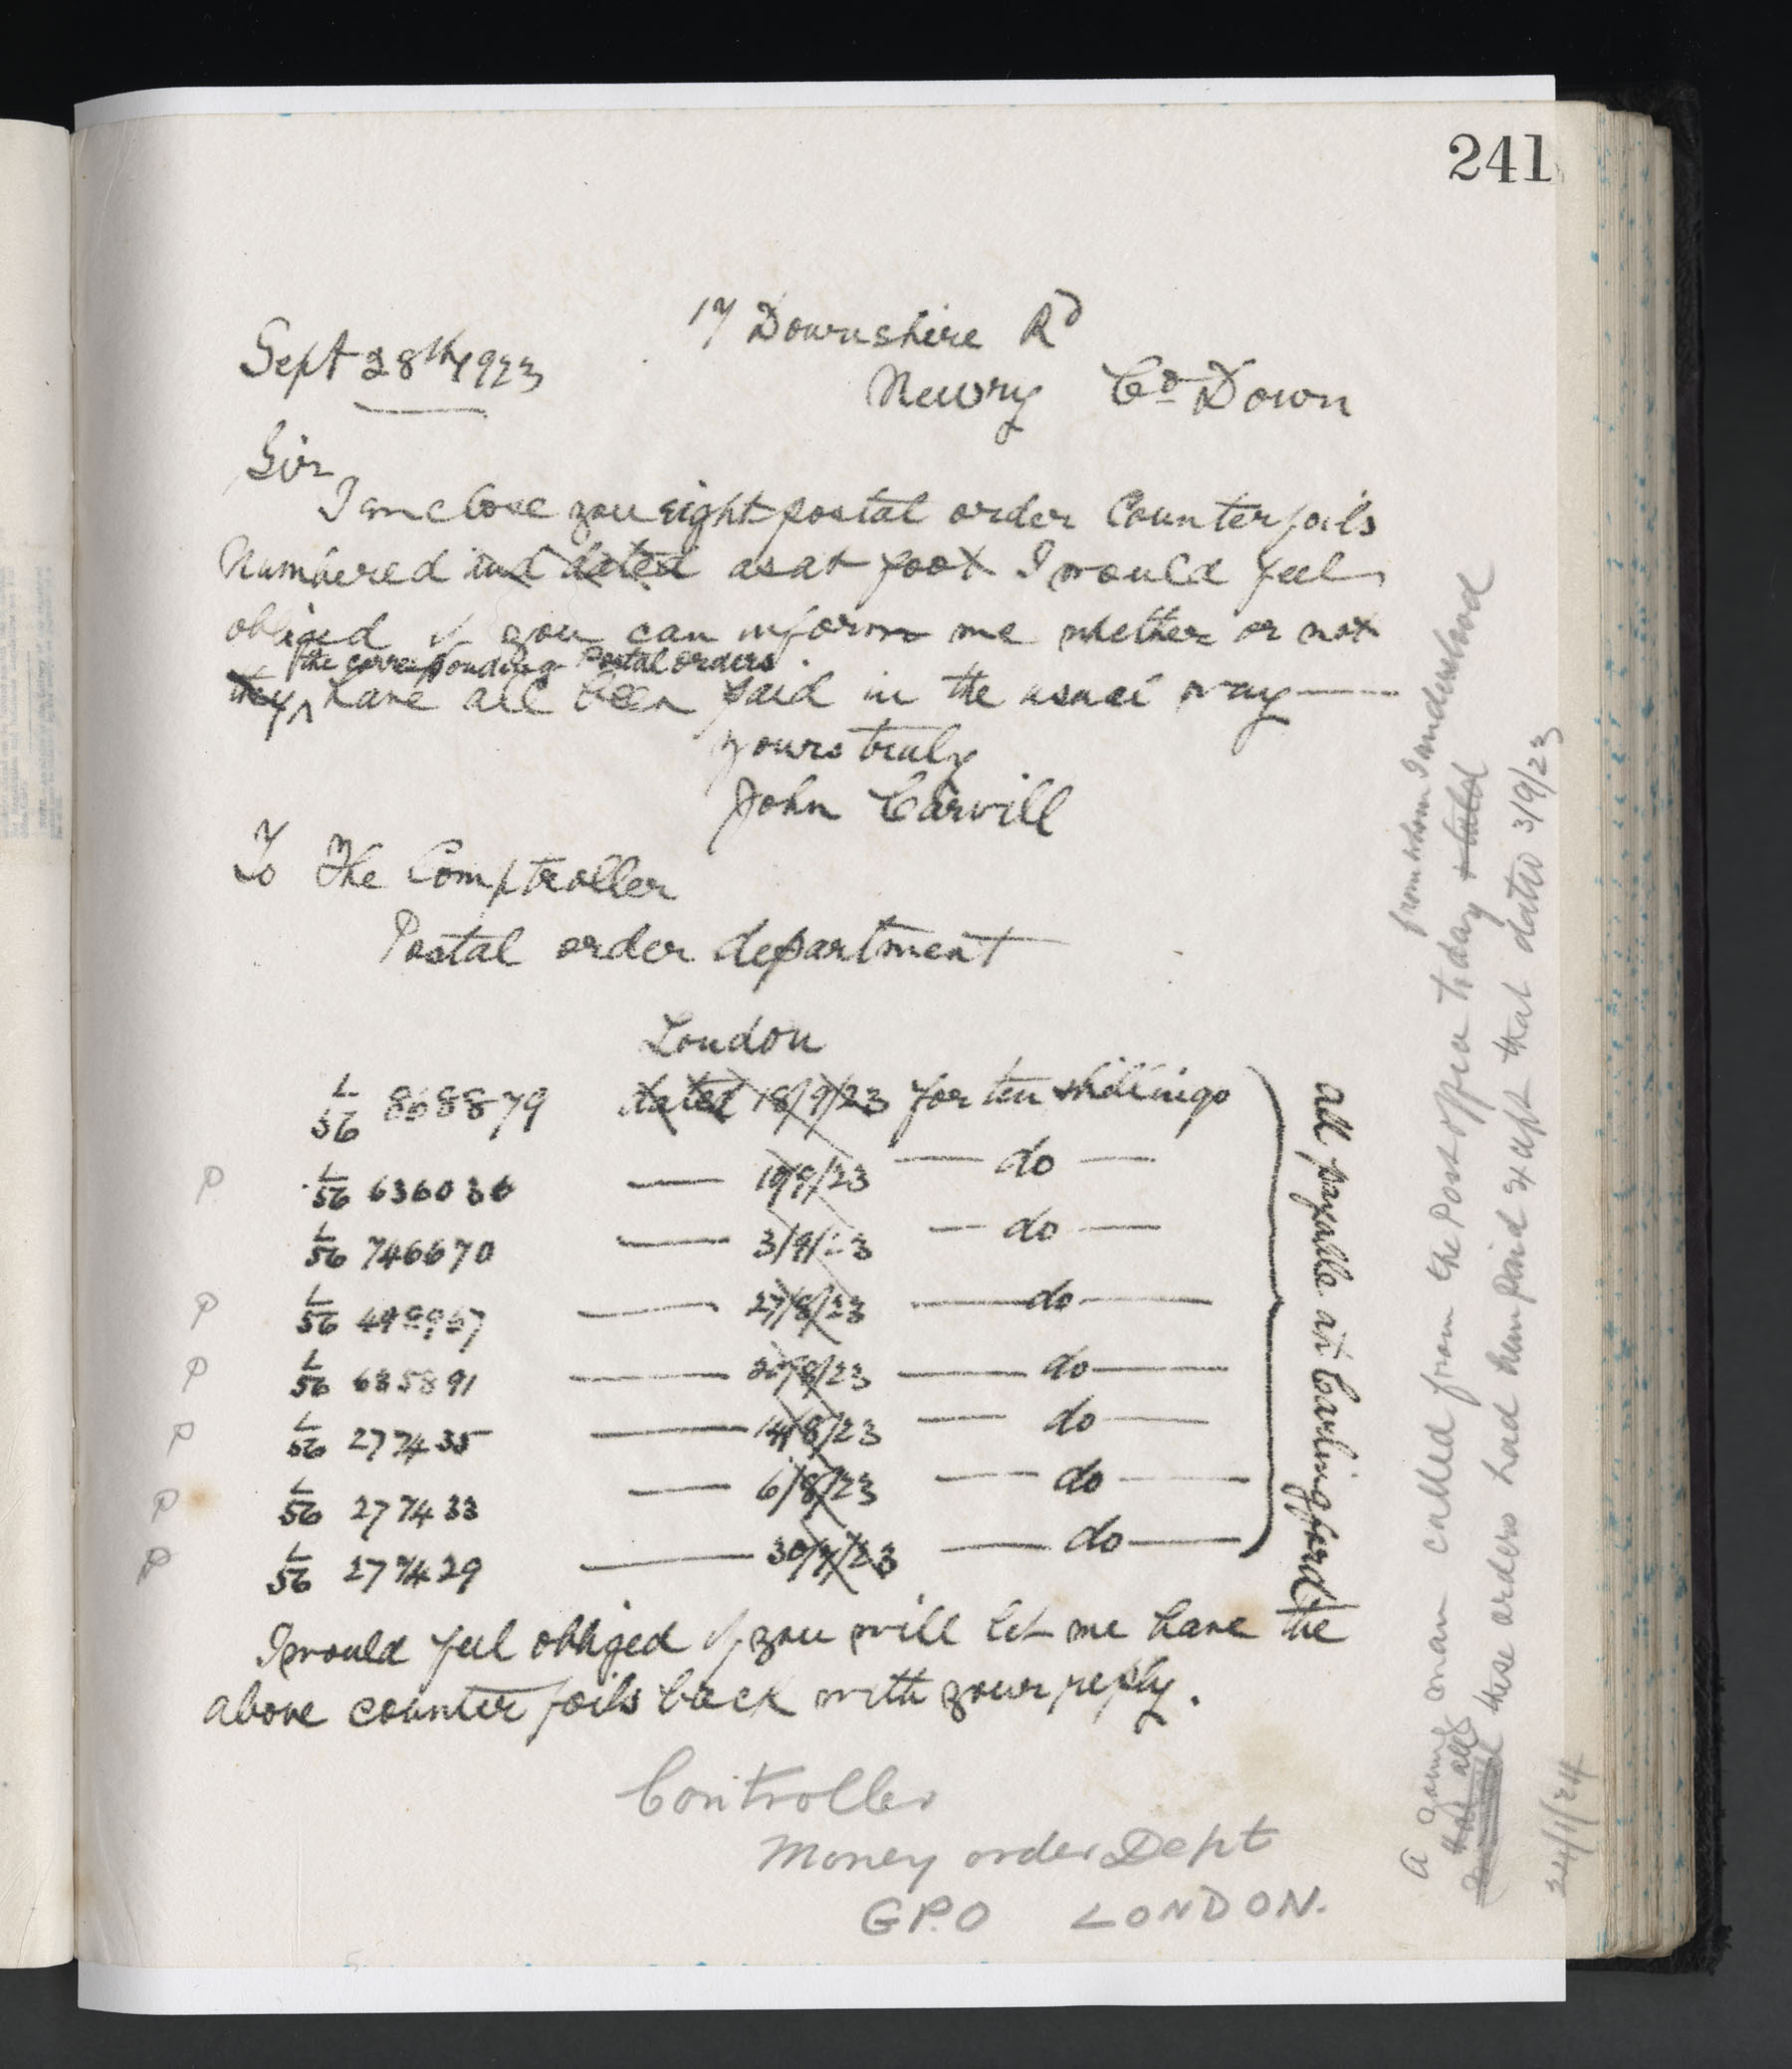 241
17 Downshire Rd
Sept 28th/1923
Newry Co Down
Sir
I enclose you eight postal order Counterfoils
Numbered and dated as at foot I would feel
obliged if you can inform me whether or not
the corresponding Postal orders
they ^ have all been paid in the usual way —
yours truly
John Carvill
To The Comptroller
Postal order department
London
L/56 868879 dated 18/9/23 for ten shillings
P L/56 636036 — 10/9/23 — do —
L/56 746670 — 3/9/23 — do —
P L/56 498967 — 27/8/23 — do —
P L/56 635891 — 20/8/23 — do —
P L/56 277435 — 14/8/23 — do —
P L/56 277433 — 6/8/23 — do —
P L/56 277429 — 30/7/23 — do —
all payable at Carlingford
I would feel obliged if you will let me have the
above counter foils back with your reply.
Controller
Money order Dept
G.P.O LONDON.
from whom I understood
A young man called from the Post office to day
that all these orders had been paid except that dated 3/9/23
24/1/24